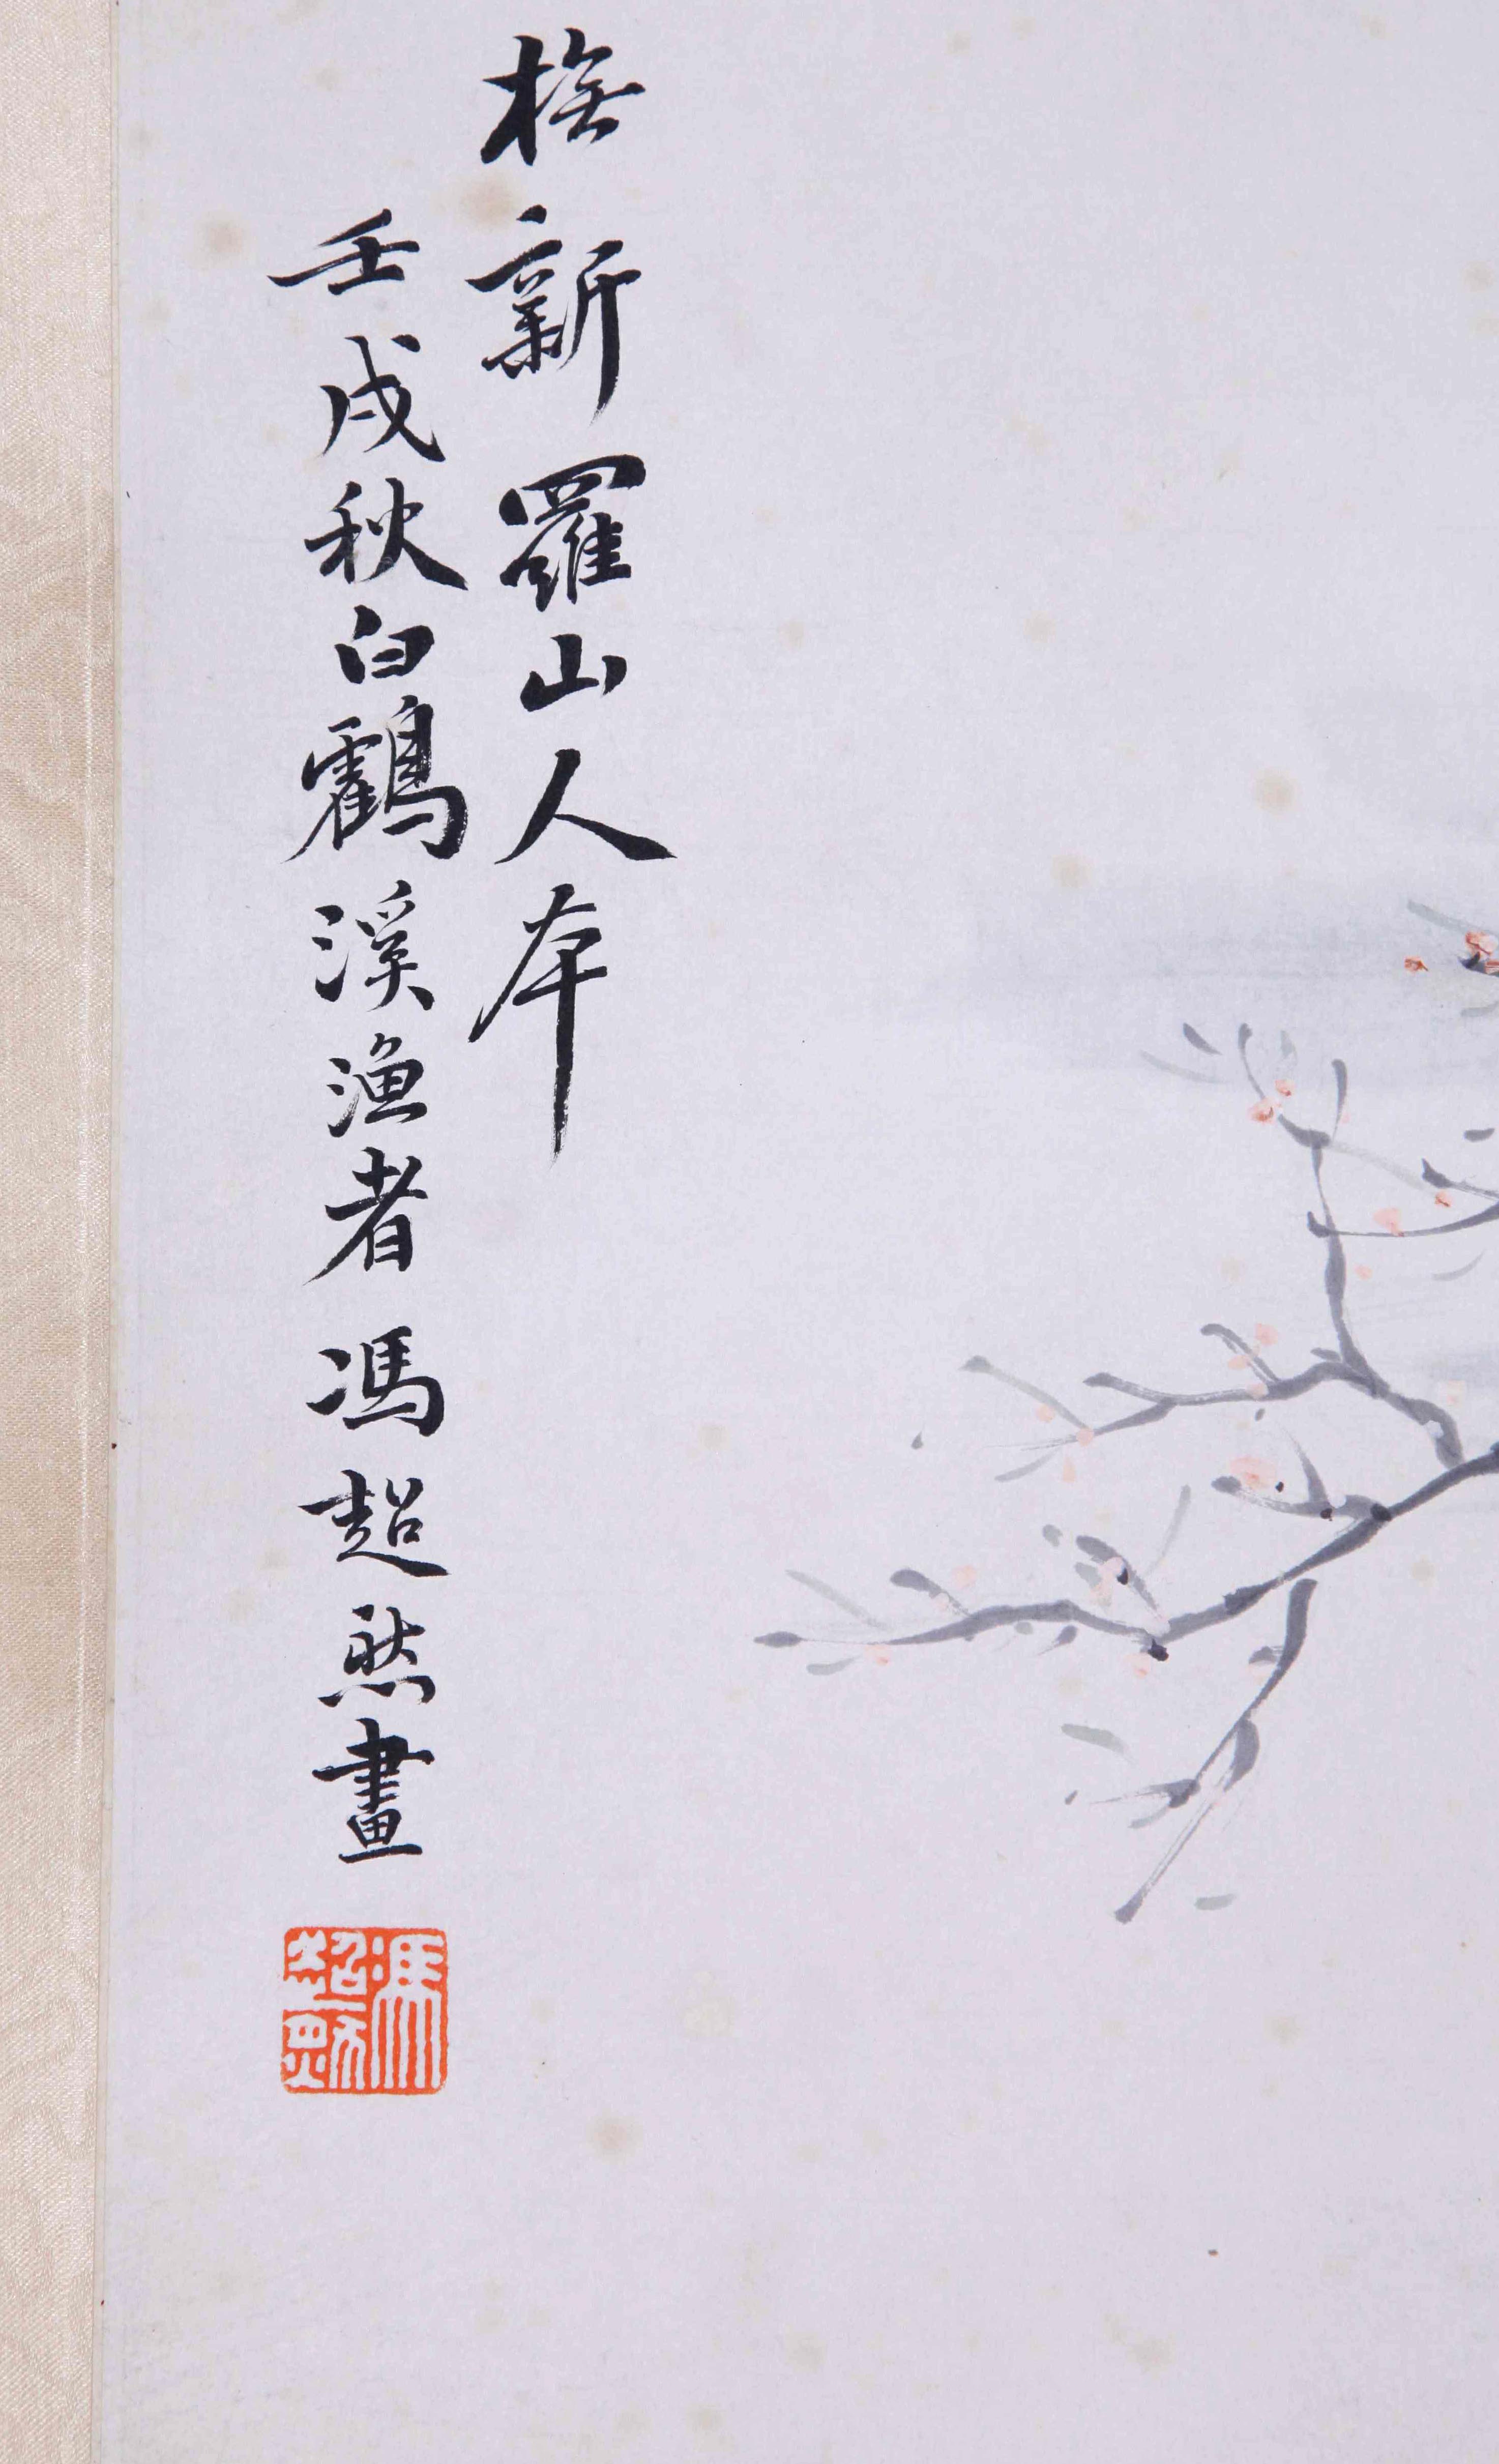 橅新羅山人本
壬戌秋白鶴溪漁者馮超然畫
馮超然